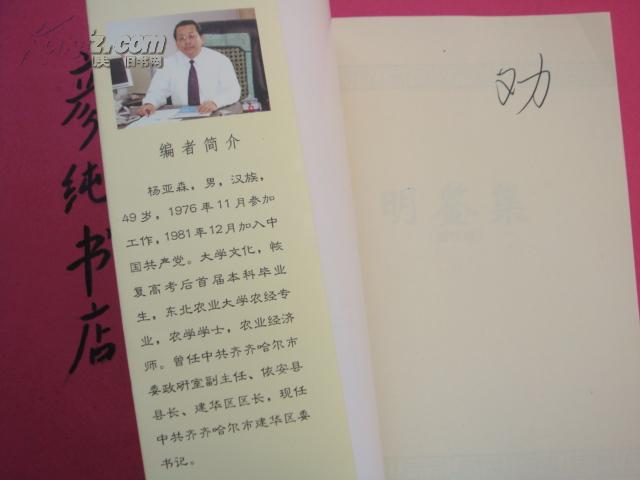 彦纯书店
编者简介
杨亚森，男，汉族，
49岁，1976年11月参加
工作，1981年12月加入中
国共产党。大学文化，恢
复高考后首届本科毕业
生，东北农业大学农经专
业，农学学士，农业经济
师。曾任中共齐齐哈尔市
委政研室副主任、依安县
县长、建华区区长，现任
中共齐齐哈尔市建华区委
书记。
明鉴集